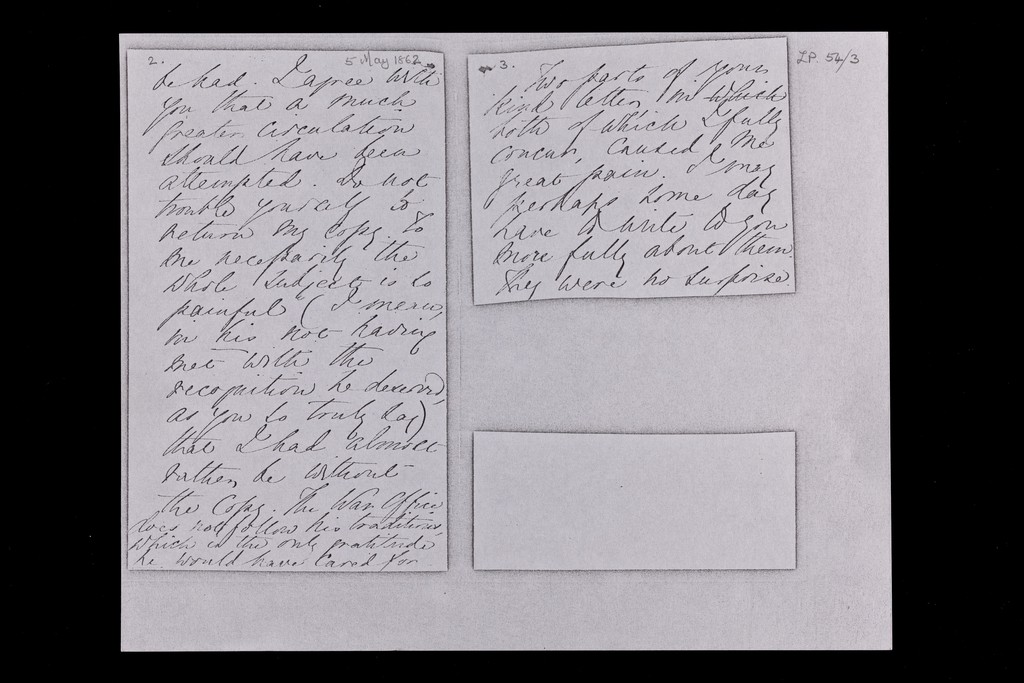 2.
5 May 1862
be had. I agree with
you that a much
greater circulation
should have been
attempted. Do not
trouble yourself to
return my copy. To
me necessarily the
whole subject is so
painful (I mean,
in his not having
met with the
recognition he deserved,
as you so truly say)
that I had almost
rather be without
the Copy. The War Office
does not follow his traditions,
which is the only gratitude
he would have cared for
3.
Two parts of your
kind letter, in which
both of which I fully
concur, caused me
great pain. I may
perhaps some day
have to write to you
more fully about them.
They were no surprise
LP. 54/3